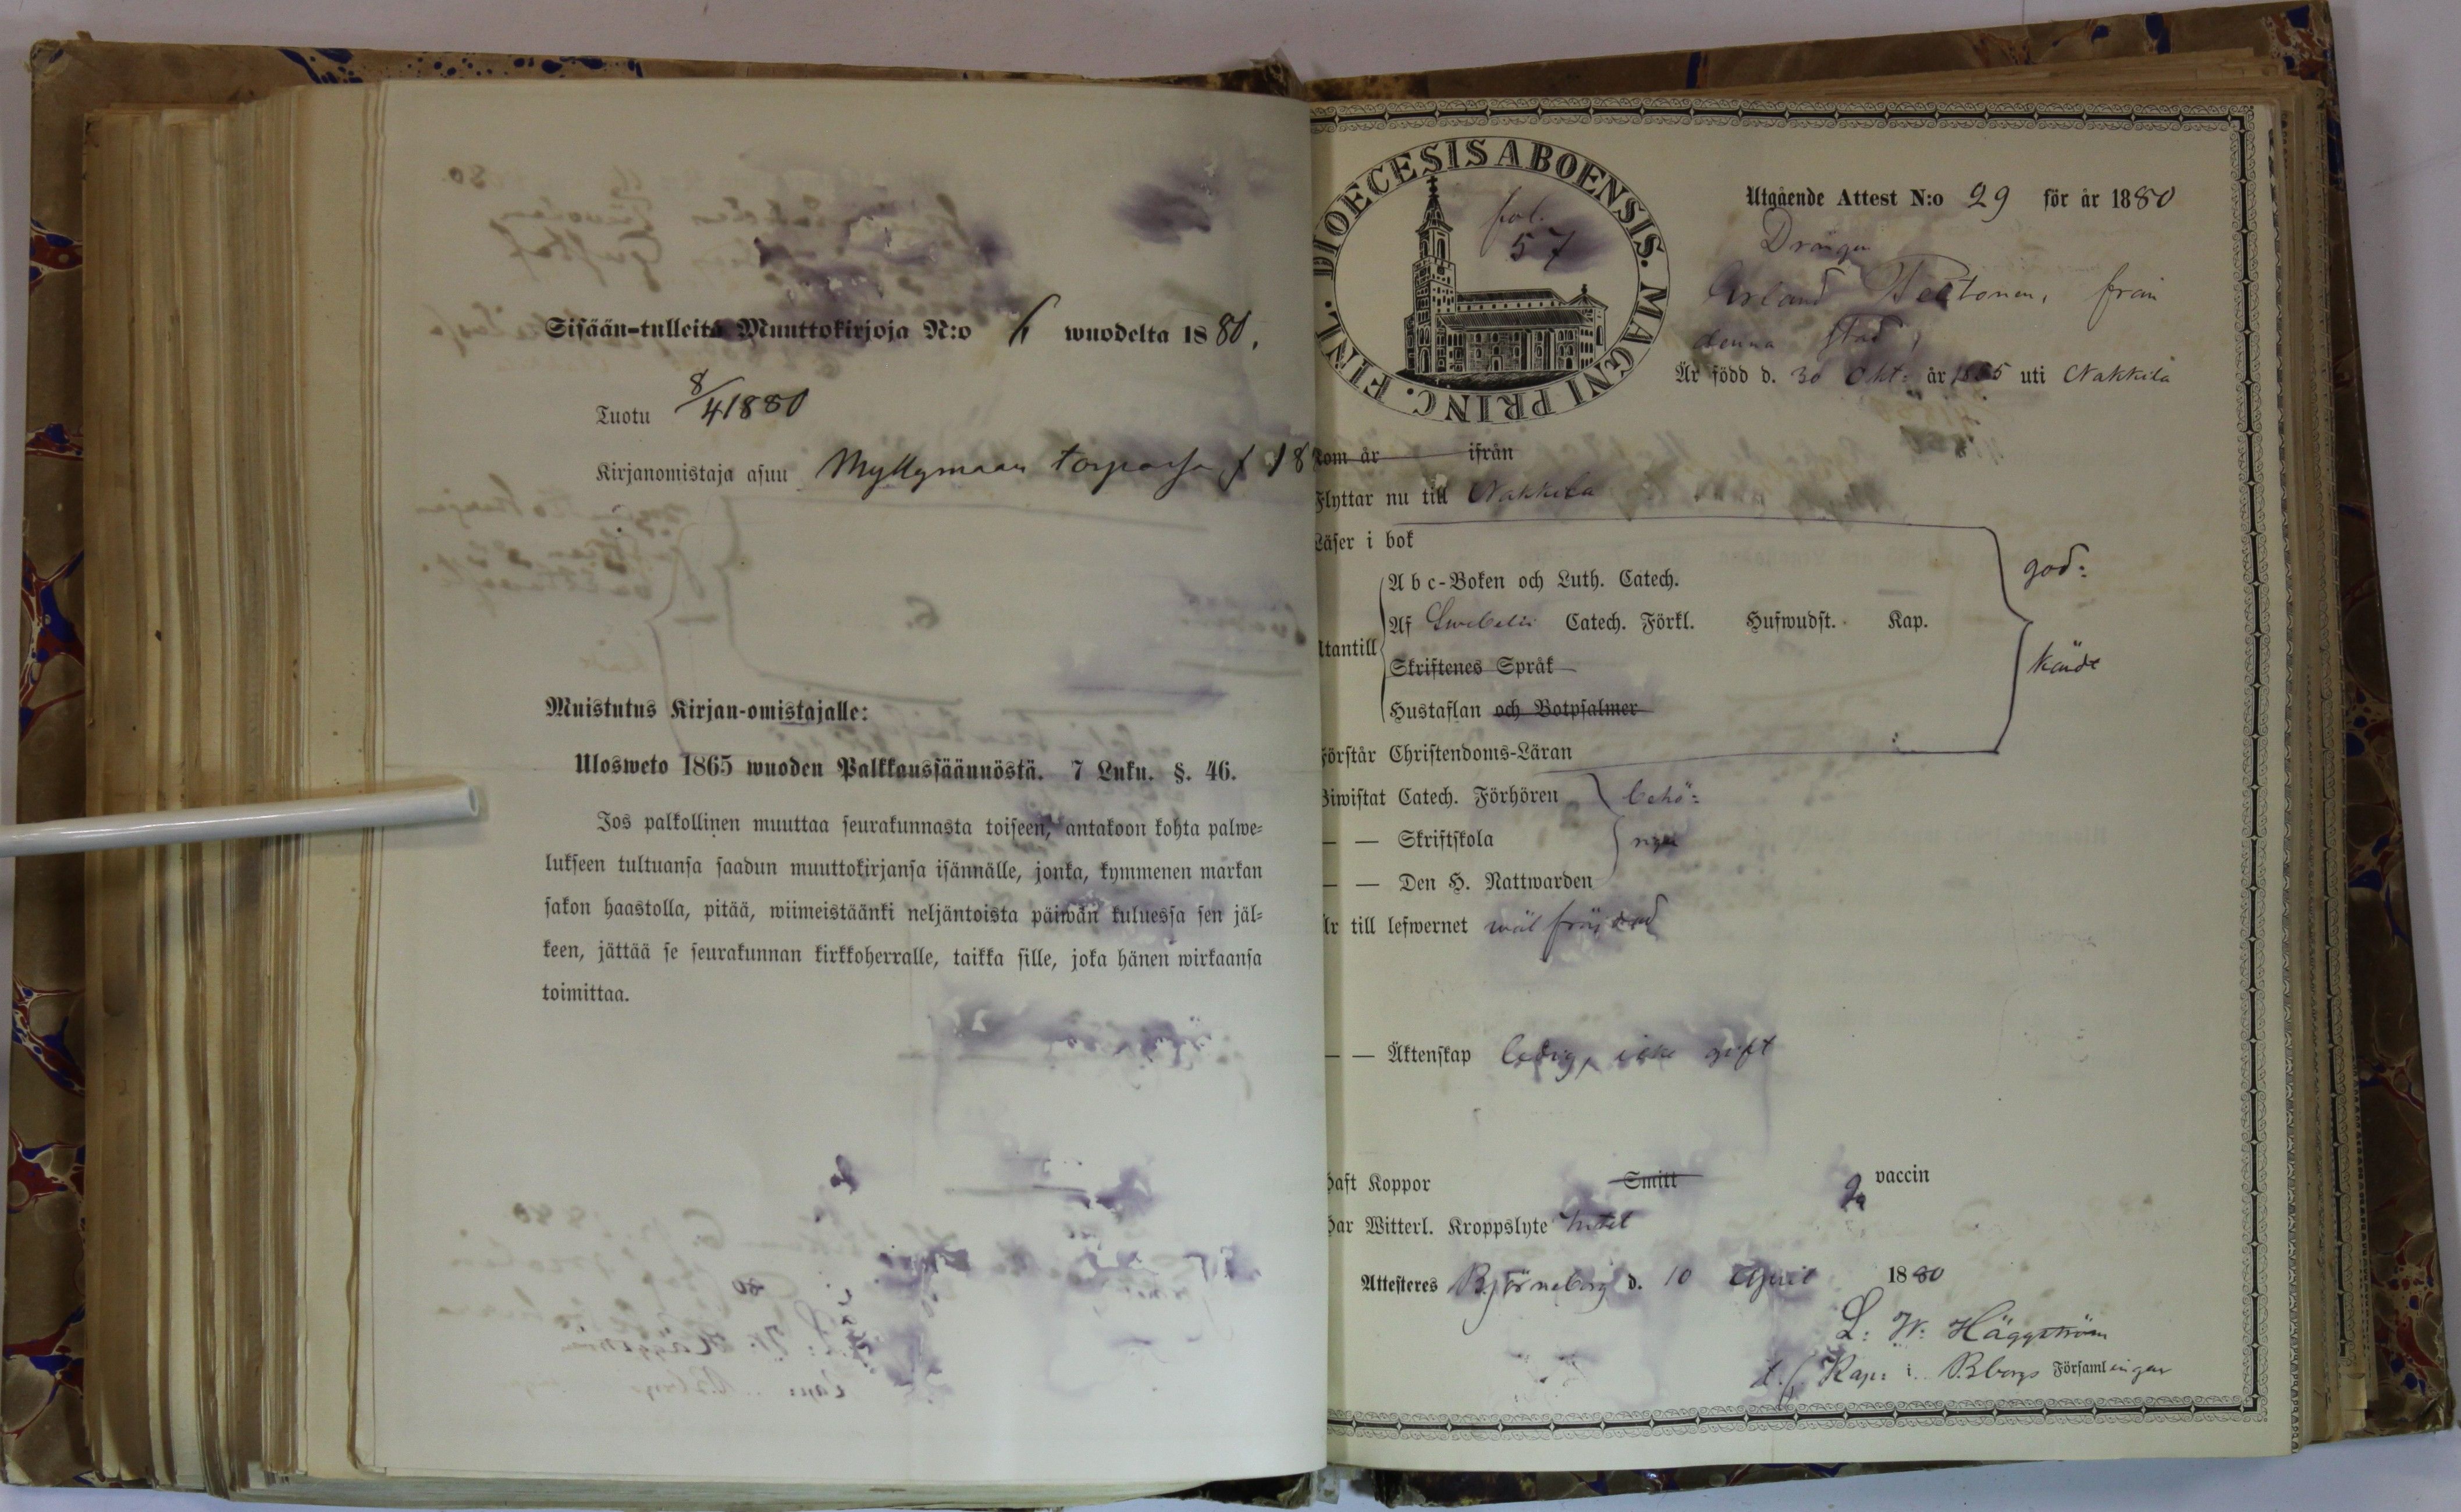 Sisään-tulleita Muuttokirjoja N:o 6 wuodelta 1880.
Tuotu 8/4 1880
Kirjanomistaja asuu Myllymaan torpassa f 18
Muistutus Kirjan-omistajalle:
Ulosweto 1865 wuoden Palkkaussäännöstä. 7 Luku. §. 46.
Jos palkollinen muuttaa seurakunnasta toiseen, antakoon kohta palwe=
lukseen tultuansa saadun muuttokirjansa isännälle, jonka, kymmenen markan
sakon haastolla, pitää, wiimeistäänki neljäntoista päiwän kuluessa sen jäl=
keen, jättää se seurakunnan kirkkoherralle, taikka sille, joka hänen wirkaansa
toimittaa.
FINL. DIOECESIS ABOENSIS. MAGNI PRINC.
fol.
57
Utgående Attest N:o 29 för år 1880
Drängen
Arland från
denna stad,
Är född d. 30 Okt: år uti Nakkila
kom år ifrån
Flyttar nu till Nakkila
Läser i bok
Utantill
A b c-Boken och Luth. Catech.
Af Swebelii Catech. Förkl. Hufwudst. Kap.
Skriftenes Språk
Hustaflan och Botpsalmer
god:
kändt
Förstår Christendoms-Läran
Biwistat Catech. Förhören behö:
— — Skriftskola rigen
— — Den H. Nattwarden
Är till lefwernet wäl fräjdad
— — Äktenskap ledig, icke gift
Haft Koppor Smitt vaccin
Har Witterl. Kroppslyte Intet
Attesteres Björneborg d. 10 April 1880
L: W: Häggström
t. f. Kap: i Bborgs Församlingar